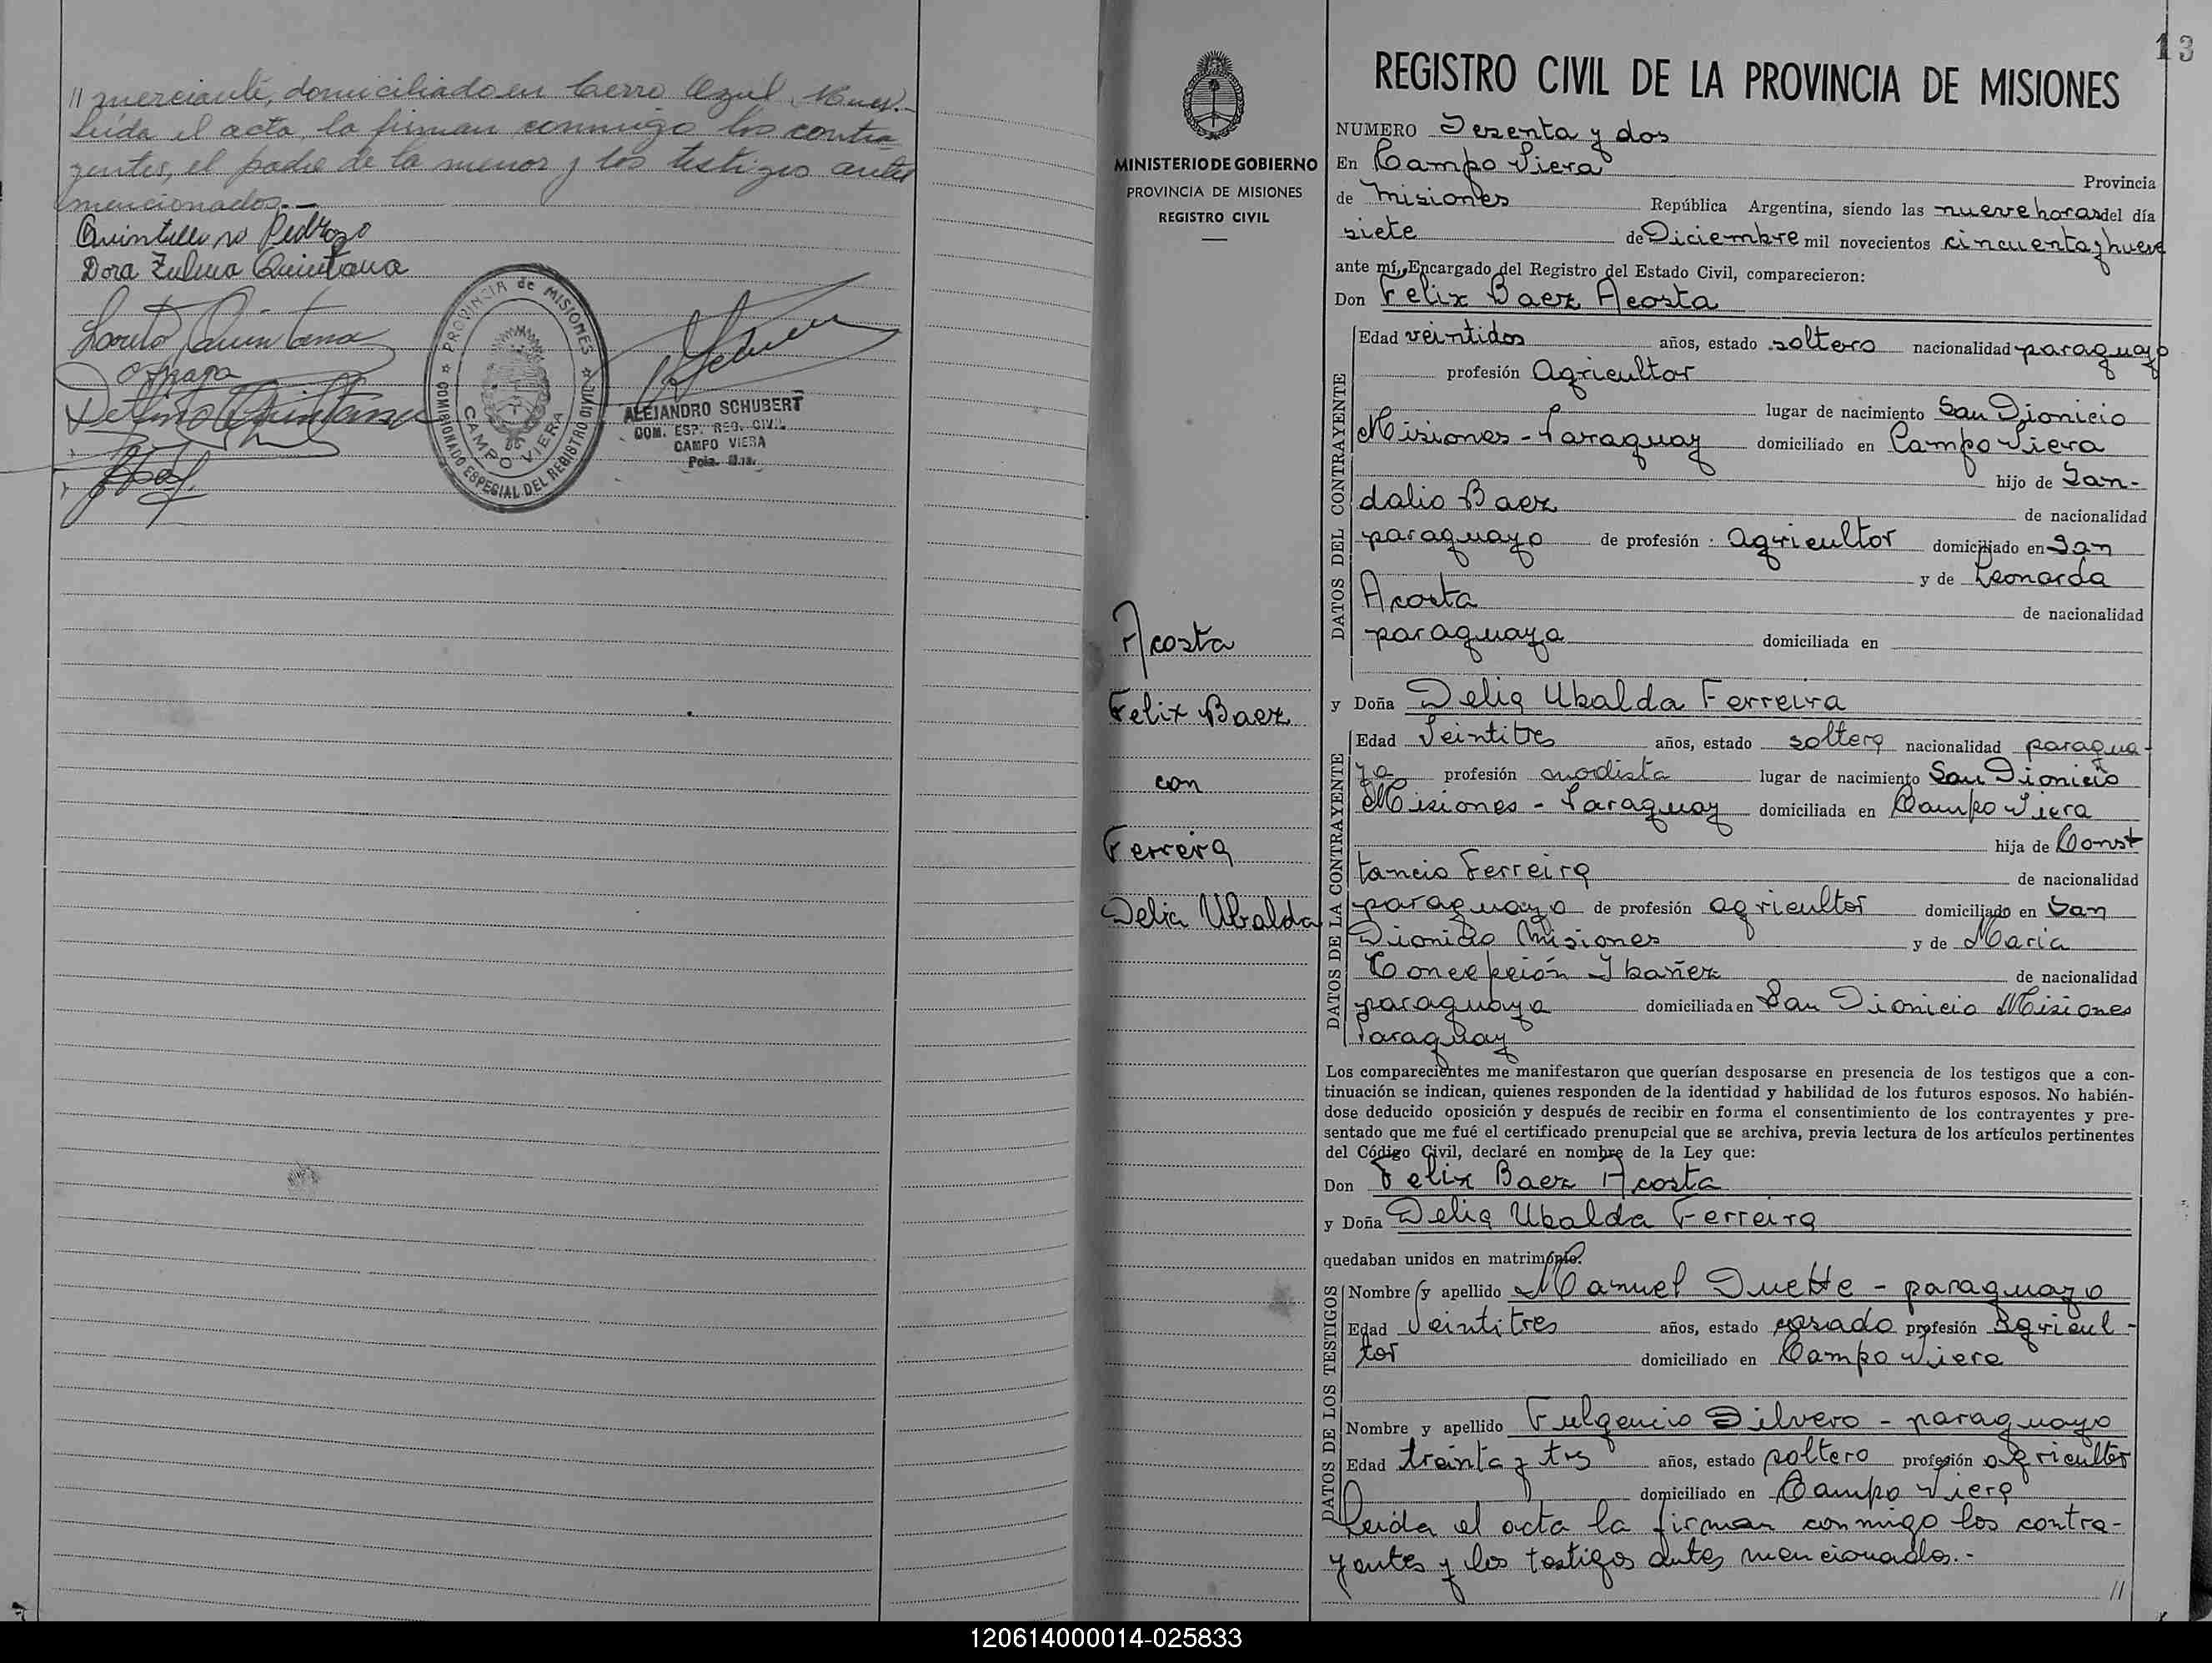 // merciante, domiciliado en Cerro Azul, Mnes.-
Leída el acta, la firman conmigo los contra
yentes, el padre de la menor y los testigos antes
mencionados.-
Quintiliano Pedrozo
Dora Zulma Quintana
Loreto Quintana
PROVINCIA de MISIONES
COMISIONADO ESPECIAL DEL REGISTRO CIVIL
CAMPO VIERA
ALEJANDRO SCHUBERT
COM. ESP. REG. CIVIL
CAMPO VIERA
Pcia. Mns.
MINISTERIO DE GOBIERNO
PROVINCIA DE MISIONES
REGISTRO CIVIL
Acosta
Felix Baez
con
Ferreira
Delia Ubalda
13
REGISTRO CIVIL DE LA PROVINCIA DE MISIONES
NUMERO Sesenta y dos
En Campo Viera Provincia
de Misiones República Argentina, siendo las nueve horas del día
siete de Diciembre mil novecientos cincuenta y nueve
ante mí, Encargado del Registro del Estado Civil, comparecieron:
Don Felix Baez Acosta
DATOS DEL CONTRAYENTE
Edad veintidos años, estado soltero nacionalidad paraguayo
profesión Agricultor
lugar de nacimiento San Dionicio
Misiones - Paraguay domiciliado en Campo Viera
hijo de San-
dalio Baez de nacionalidad
paraguayo de profesión Agricultor domiciliado en San
y de Leonarda
Acosta de nacionalidad
paraguaya domiciliada en
y Doña Delia Ubalda Ferreira
DATOS DE LA CONTRAYENTE
Edad Veintitres años, estado soltera nacionalidad paragua-
ya profesión modista lugar de nacimiento San Dionicio
Misiones - Paraguay domiciliada en Campo Viera
hija de Const
tancio Ferreira de nacionalidad
paraguayo de profesión agricultor domiciliado en San
Dionicio Misiones y de Maria
Concepción Ibañez de nacionalidad
paraguaya domiciliada en San Dionicio Misiones
Paraguay
Los comparecientes me manifestaron que querían desposarse en presencia de los testigos que a con-
tinuación se indican, quienes responden de la identidad y habilidad de los futuros esposos. No habién-
dose deducido oposición y después de recibir en forma el consentimiento de los contrayentes y pre-
sentado que me fué el certificado prenupcial que se archiva, previa lectura de los artículos pertinentes
del Código Civil, declaré en nombre de la Ley que:
Don Felix Baez Acosta
y Doña Delia Ubalda Ferreira
quedaban unidos en matrimonio.
DATOS DE LOS TESTIGOS
Nombre y apellido Manuel Duette - paraguayo
Edad Veintitres años, estado casado profesión Agricul-
tor domiciliado en Campo Viera
Nombre y apellido Fulgencio Silvero - paraguayo
Edad treinta y tres años, estado soltero profesión agricultor
domiciliado en Campo Viera
Leída el acta la firman conmigo los contra-
yentes y los testigos antes mencionados.-
//
120614000014-025833